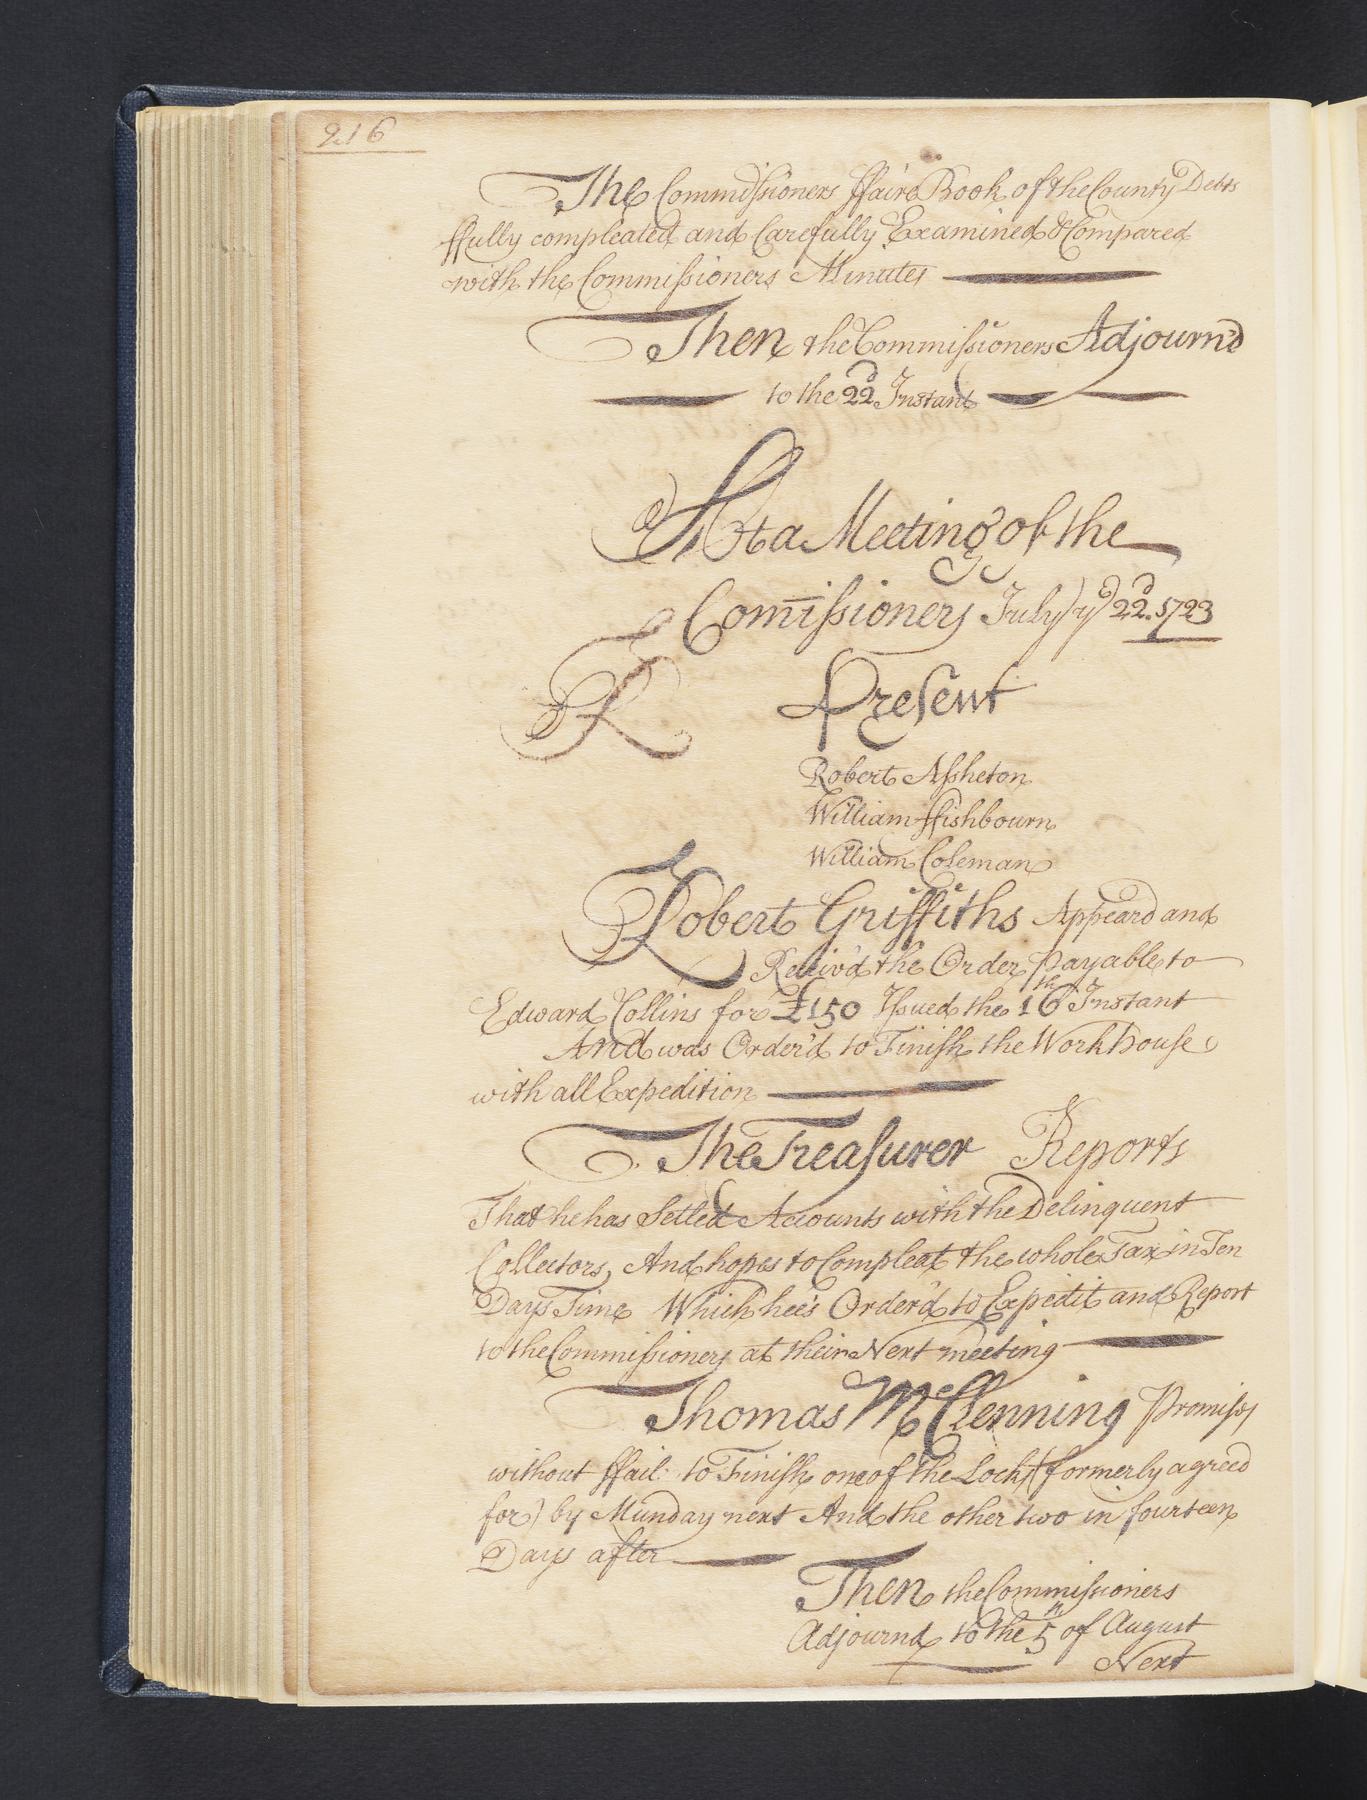 216
The Commissioners ffaire Book of the County Debts
ffully compleated and Carefully Examined & Compared
with the Commissioners Minutes
Then the Commissioners Adjourn'd
to the 22d Instant
At a Meeting of the
Com̄issioners July ye 22d. 1723
Present
Robert Assheton
William ffishbourn
William Coleman
Robert Griffiths Appeard and
Receiv'd the Order payable to
Edward Collins for £150 Issued the 16th Instant
And was Order'd to Finish the Workhouse
with all Expedition
The Treasurer Reports
That he has Setled Accounts with the Delinquent
Collectors, And hopes to Compleat the whole Tax in Ten
Days Time Which hee's Order'd to Expedit and Report
to the Commissioners at their Next meeting
Thomas McClenning Promises
without ffail: to Finish one of the Locks (formerly agreed
for) by Munday next And the other two in fourteen
Days after
Then the Commissioners
Adjournd to the 5th of August
Next